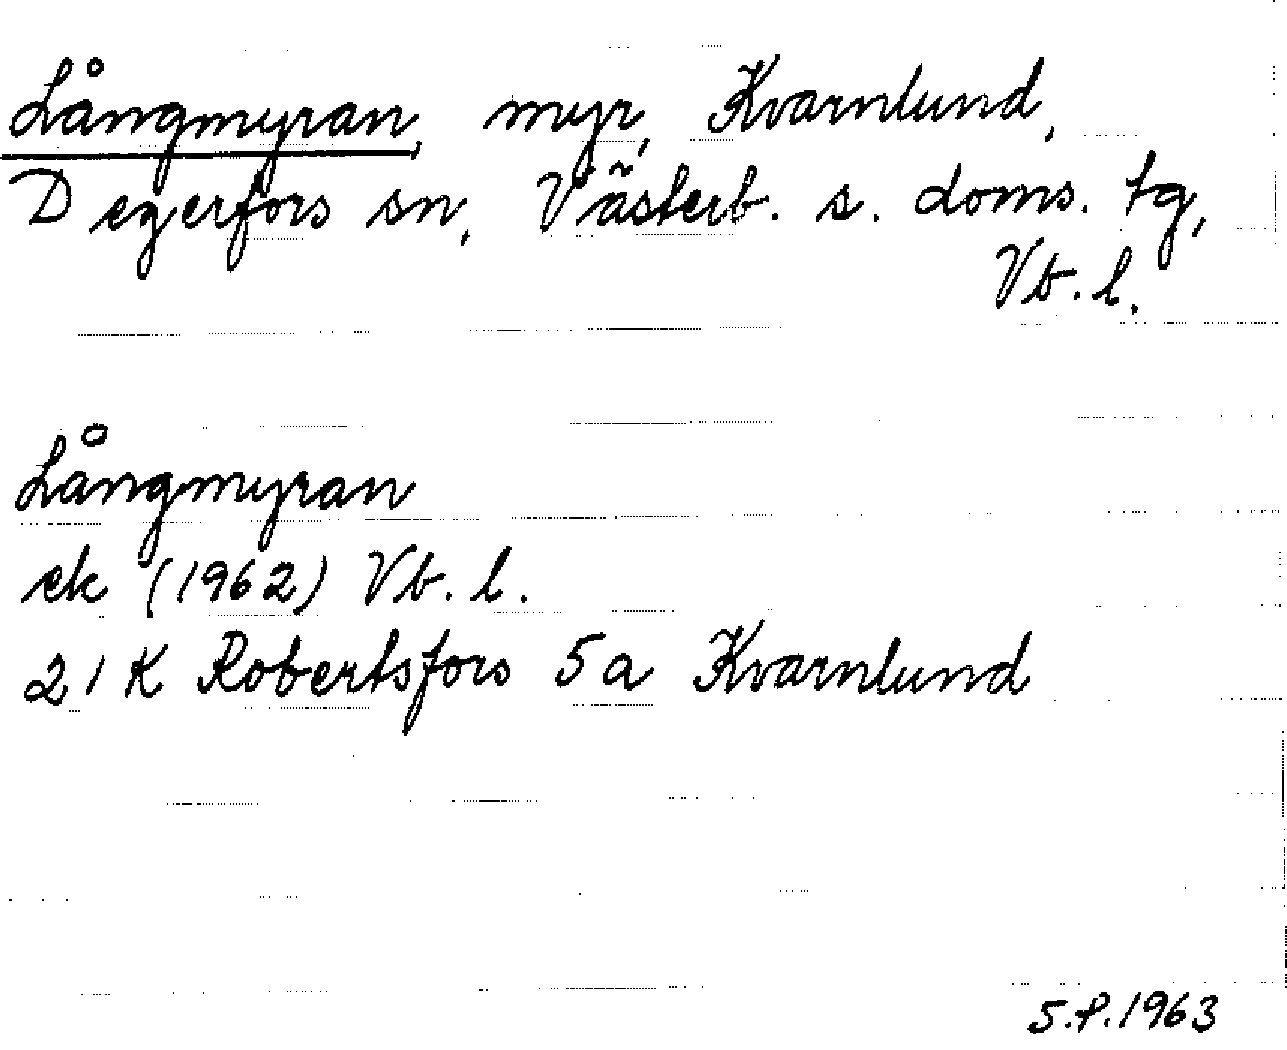 Långmyran, myr, Kvarnlund,
Degerfors sn, Västerb. s. doms. tg,
Vb. l.
Långmyran
ek (1962) Vb. l.
21K Robertsfors 5a Kvarnlund
S.P. 1963